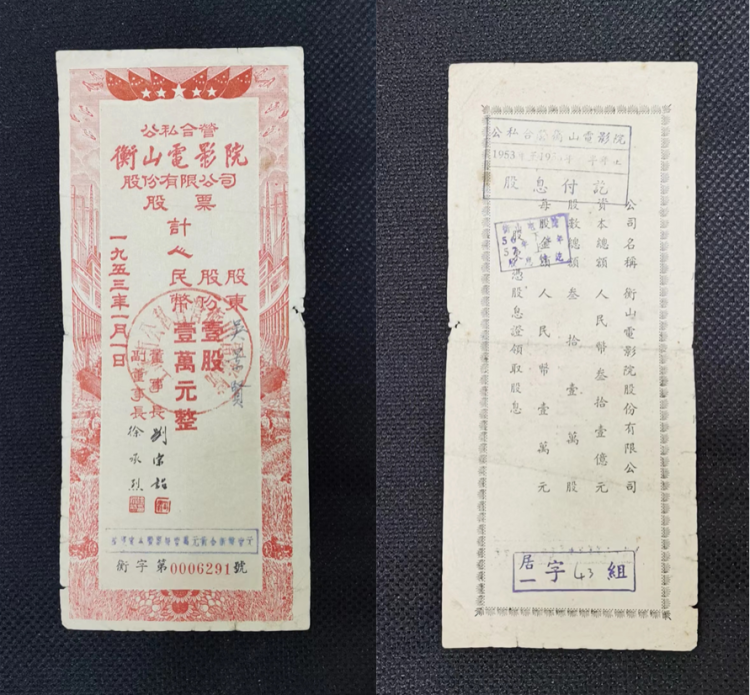 公私合營
衡山電影院
股份有限公司
股票
計
股東 吳
股份壹股
人民幣壹萬元整
董事長 劉
副董事長 徐承烈
一九五三年一月一日
衡字第0006291號
公私合營衡山電影院
1953
股息付訖
公司名稱 衡山電影院股份有限公司
資本總額 人民幣叁拾壹億元
股數總額 叁拾壹萬股
每股金額 人民幣壹萬元
憑股息證領取股息
居一字43組